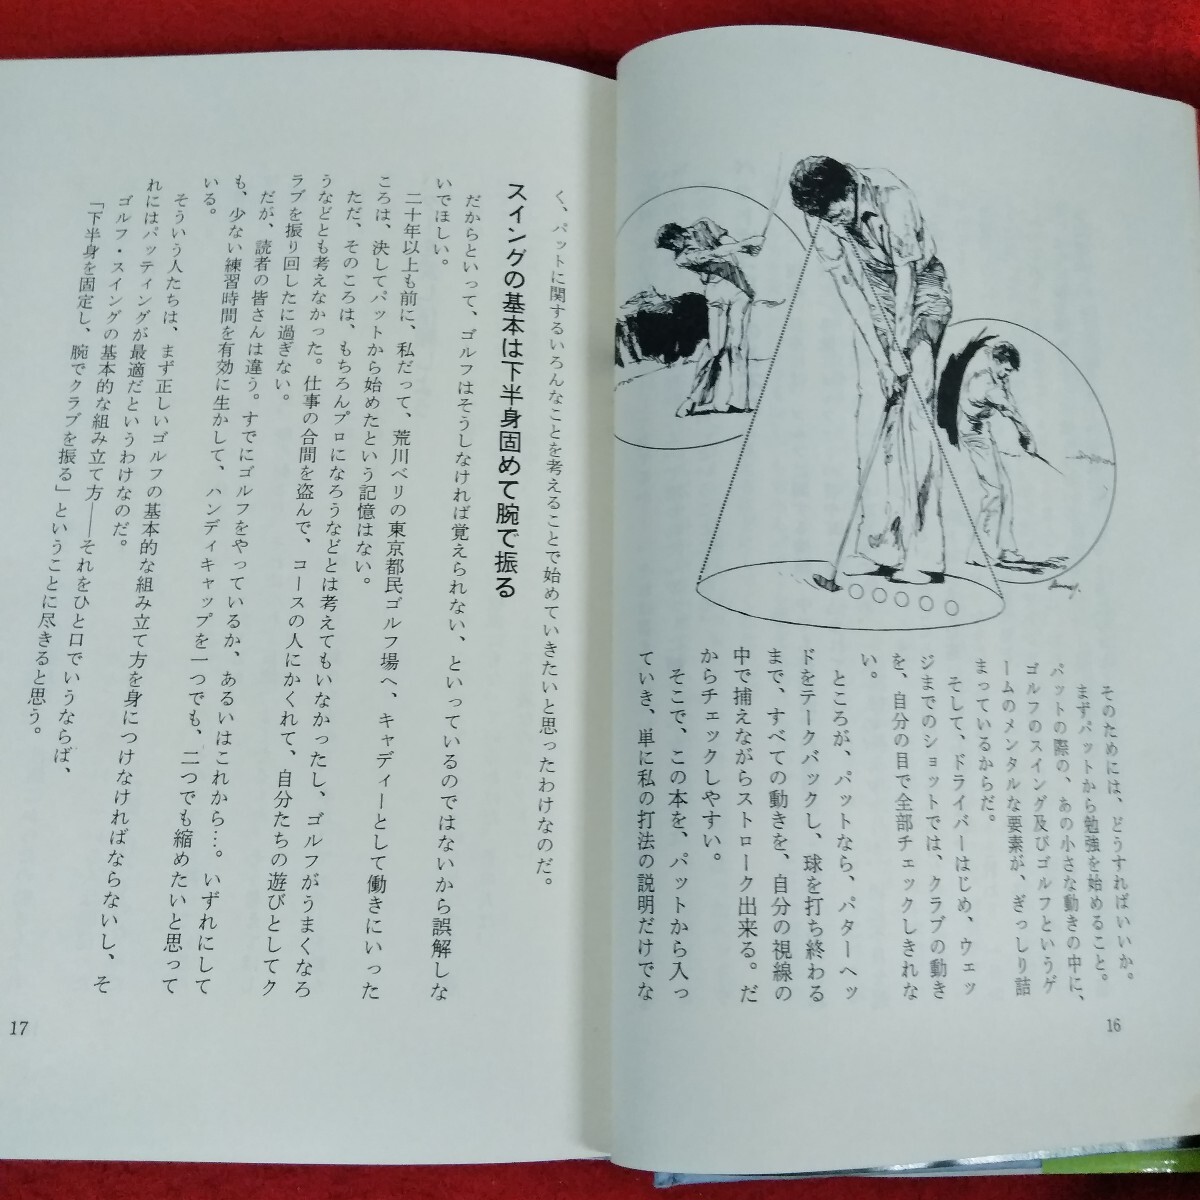 そのためには、どうすればいいか。
まずパットから勉強を始めること。
パットの際の、あの小さな動きの中に、
ゴルフのスイング及びゴルフというゲ
ームのメンタルな要素が、ぎっしり詰
まっているからだ。
そして、ドライバーはじめ、ウェッ
ジまでのショットでは、クラブの動き
を、自分の目で全部チェックしきれな
い。
ところが、パットなら、パターヘッ
ドをテークバックし、球を打ち終わる
まで、すべての動きを、自分の視線の
中で捕えながらストローク出来る。だ
からチェックしやすい。
そこで、この本を、パットから入っ
ていき、単に私の打法の説明だけでな
16
く、パットに関するいろんなことを考えることで始めていきたいと思ったわけなのだ。
スイングの基本は下半身固めて腕で振る
だからといって、ゴルフはそうしなければ覚えられない、といっているのではないから誤解しな
いでほしい。
二十年以上も前に、私だって、荒川ベリの東京都民ゴルフ場へ、キャディーとして働きにいった
ころは、決してパットから始めたという記憶はない。
ただ、そのころは、もちろんプロになろうなどとは考えてもいなかったし、ゴルフがうまくなろ
うなどとも考えなかった。仕事の合間を盗んで、コースの人にかくれて、自分たちの遊びとしてク
ラブを振り回したに過ぎない。
だが、読者の皆さんは違う。すでにゴルフをやっているか、あるいはこれから…。いずれにして
も、少ない練習時間を有効に生かして、ハンディキャップを一つでも、二つでも縮めたいと思って
いる。
そういう人たちは、まず正しいゴルフの基本的な組み立て方を身につけなければならないし、そ
れにはパッティングが最適だというわけなのだ。
ゴルフ・スイングの基本的な組み立て方――それをひと口でいうならば、
「下半身を固定し、腕でクラブを振る」ということに尽きると思う。
17